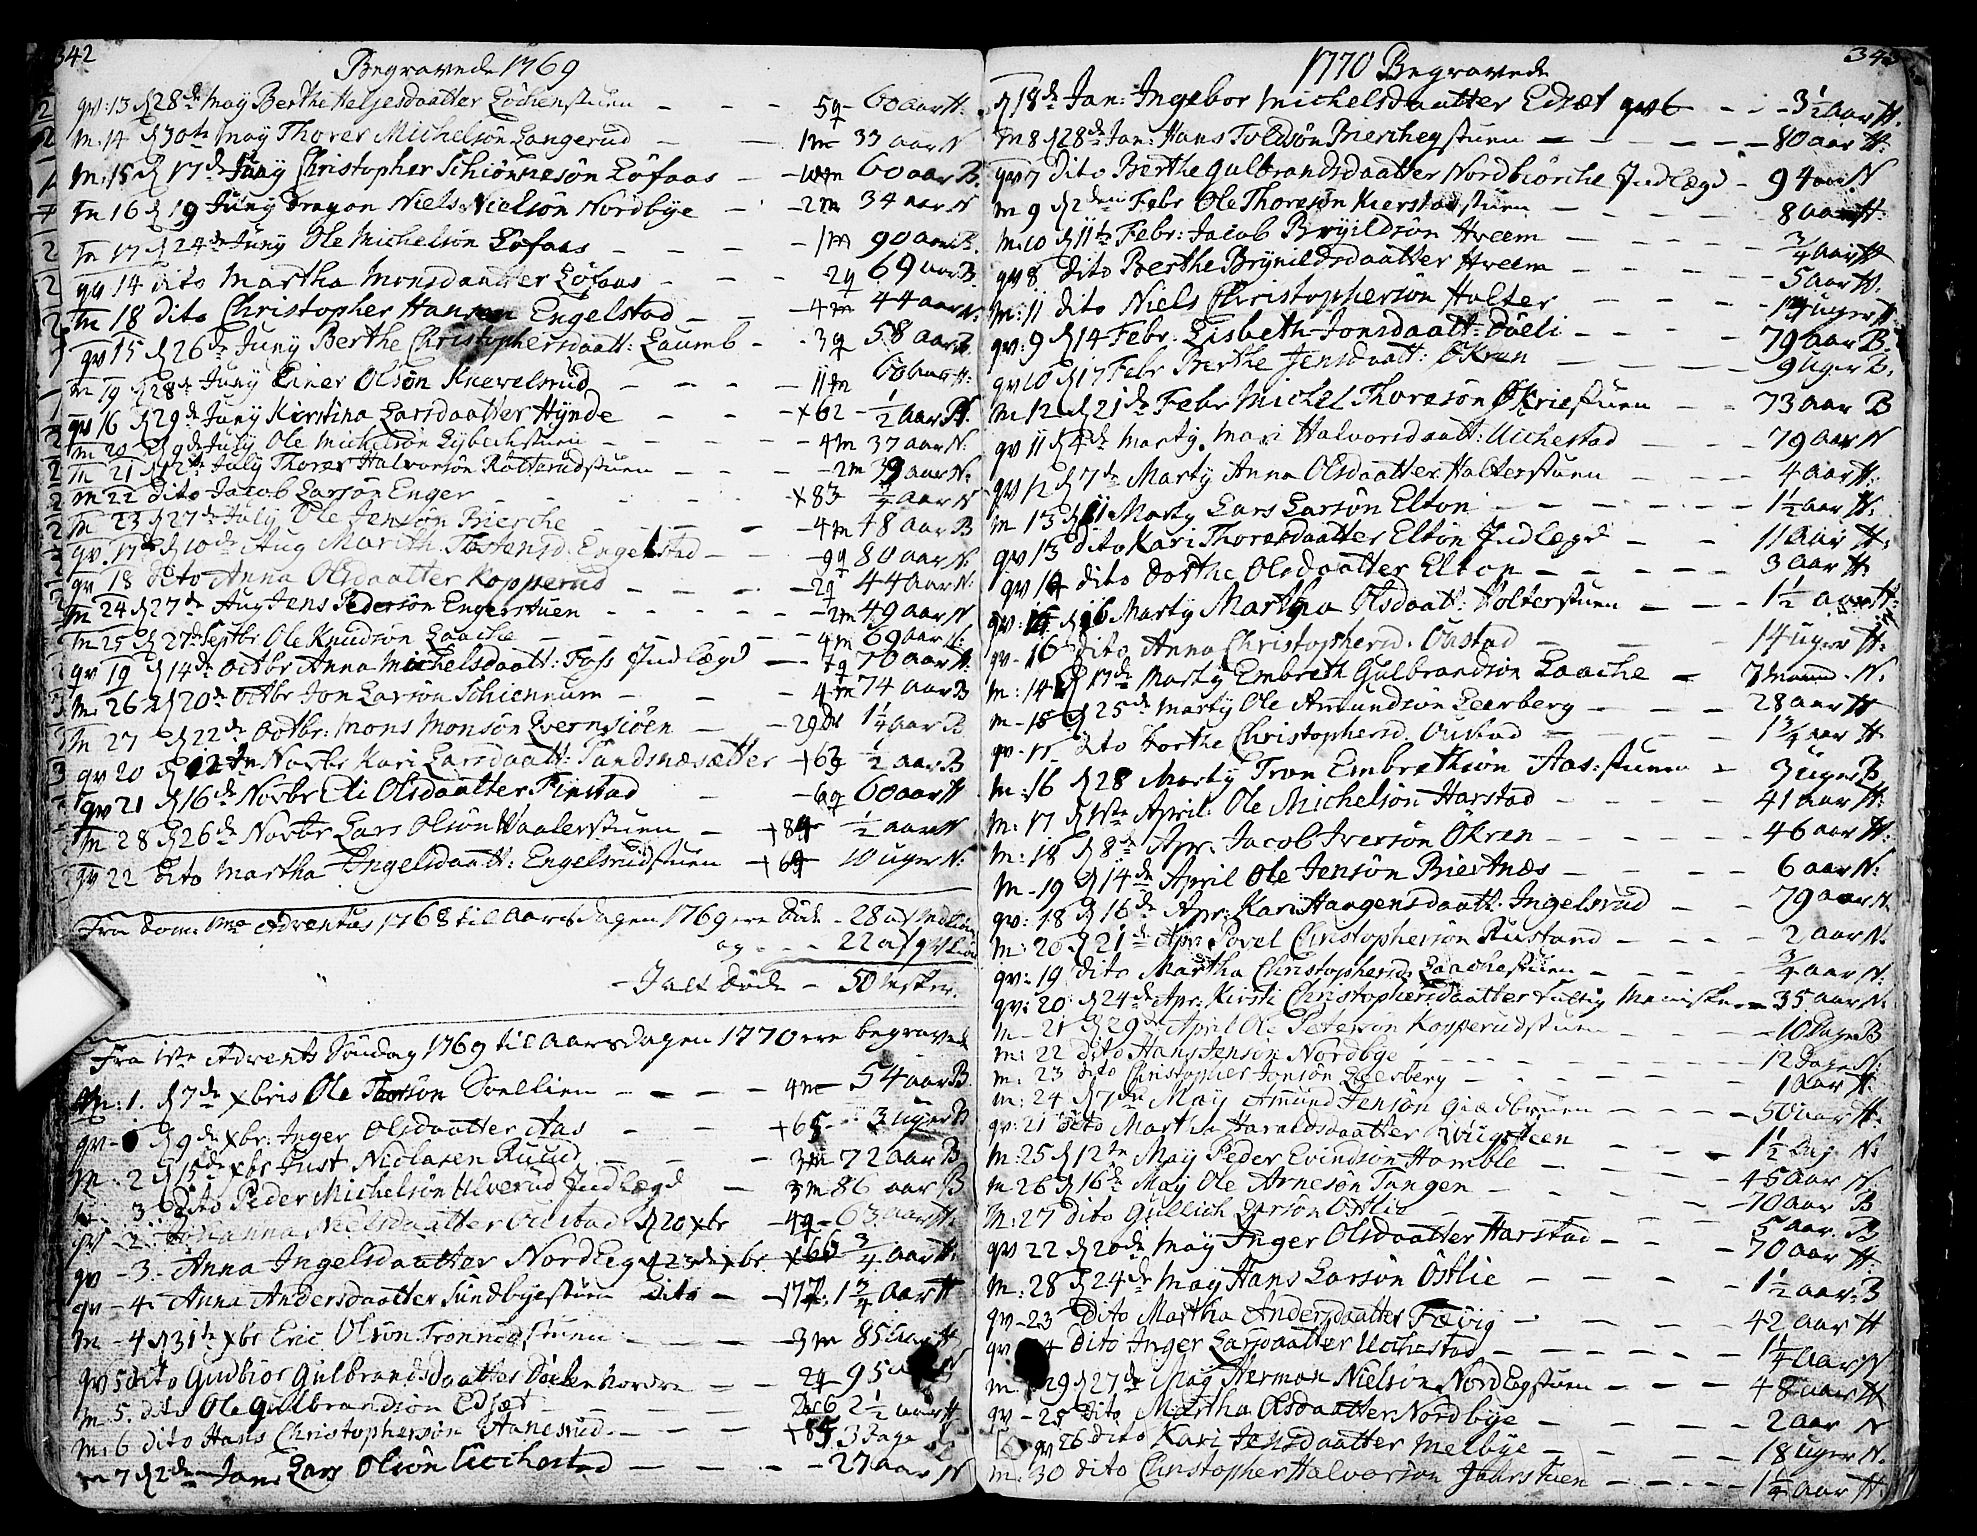 342
Begravede 1769
qv: 13 d 28de May Berthe Heljesdaatter Löchenstuen - - - 5q - 60 aar H.
m. 14 d 30te may Thorer Michelsön Langerud - - 1m 33 aar N
m. 15 d 17de Juny Christopher Schiönnesön Löfaas - 10m 60 aar B.
m 16 d 19 Juny Dragon Niels Nielsön Nordbye - 2m 34 aar N
m 17 d 24de Juny Ole Michelsön Löfaas - - - 1m 90 aar B.
qv 14 dito Martha Monsdaatter Löfaas - - - 2q 69 aar B.
m 18 dito Christopher Hansen Engelstad - - 4m 44 aar N.
qv 15 d 26de Juny Berthe Christophersdaatt: Laumb - - 3q 58 aar B.
m 19 d 28de Juny Einer Olsön Knevelsrud - - - 11m 60 aar H.
qv 16 d 29de Juny Kirstina Larsdaatter Hÿnde - - - x62 - 1/2 aar H.
m 20 d 9de July Ole Michelsön Lybechstuen - - - 4m 37 aar N.
m 21 d 12te July Thorer Halvorsön Rotterudstuen - - - 2m 39 aar N.
m 22 dito Jacob Larsön Enger - - - x83 1/4 aar N
m 23 d 27de July Ole Jensön Bierche - - - 4m 48 aar B
qv. 17 d 10de Aug Marith Tostensd. Engelstad - - 9q 80 aar N.
qv 18 dito Anna Olsdaatter Kopperud - - - 2q 44 aar N.
m 24 d 27de Aug Jens Pedersön Engerstuen - - - 2m 49 aar N
m 25 d 27de Septbr Ole Knudsön Laache - - - 4m 69 aar N.
qv 19 d 14de Octbr Anna Michelsdaatt: Foss Indlægd - 7q 70 aar H.
m. 26 d 20de Octbr Jon Larsön Schiennum - - 4m 74 aar B
m 27 d 22de Octbr: Mons Monsön Qvernsiöen - - 29 1 1/4 aar B
qv 20 d 12te Novbr Kari Larsdaatt: Sandsnæsætter +63 1/2 aar B
qv 21 d 16de Novbr Eli Olsdaatter Finstad - - 6q 60 aar H
m 28 d 26de Novbr Lars Olsön Waalerstuen - +84 1/2 aar N
qv 22 dito Martha Ingelsdaatt: Engelsrudstuen - +64 10 uger N.
Fra Dom: 1me Adventus 1768 til Aarsdagen 1769 ere Döde - 28 af Mdkiön
og - - - 22 af qv kiön
- Jalt Döde - 50 Msker.
Fra 1ste Advents Söndag 1769 til Aarsdagen 1770 ere begravede
m: 1. d 7de xbris Ole Torsön Soellien - - - 4m - 54 aar B
qv - 1 d 9de xbr: Inger Olsdaatter Aas - - +65 - 3 uger B
m. 2 d 15de xbr Just Niclasen Ruud - - - 3m 72 aar B
m. 3 dito Peder Michelsön Ulverud Indlægd - 3m 86 aar B
qv - 2. Johanna Nielsdaatter Oustad d 20 xbr - 4q - 63 aar H.
qv - 3 - Anna Ingelsdaatter Nordleg d 23de xbr. x66 3/4 aar H.
qv - 4 - Anna Andersdaatter Sundbyestuen dito - - 177. 1 3/4 aar H
m - 4 d 31te xbr Eric Olsön Trönnesstuen - - - 3m 85 aar H
qv 5 dito Gudbior Gulbrandsdaatter Döelen Nordre - - 2q 95 aar N
m 5. dito Ole Gulbrandsön Edset - - - 2 1/2 aar H
m. 6 dito Hans Christophersön Stanesrud - - +85 3 Dage
m 7 d 2de Jan: Lars Olsön Uchestad - - - 27 aar N
343
1770 Begravede
d 18de Jan: Ingebor Michelsdaatter Edset qv 6 - - 3 1/2 aar H.
m 8 d 28de Jan: Hans Tvedsön Biercheystuen - - - 80 aar H.
qv 7 dito Berthe Gulbrandsdaatter Nordbiörche Indlægd - 94 aar N
m 9 d 2den Febr Ole Thoresön Kierstadstuen - - - 8 aar H.
m. 10 d 11te Febr: Jacob Brynildsön Hreem - - - 3/4 aar H
qv 8. dito Berthe Brynildsdaatter Hreem - - - 5 aar H.
m. 11 dito Niels Christophersön Holter - - - 14 uger H
qv: 9 d 14 Febr. Lisbeth Jonsdaatt: Döeli - - - 79 aar B.
qv 10 d 17 Febr Berthe Jensdaatt: Ökren - - 9 uger B.
m 12 d 21de Febr Michel Thoresön Ökriestuen - - 73 aar B
qv 11 d 4de Marty. Mari Halvorsdaatt: Uchestad - - 79 aar N
qv 12 d 7de Marty Anna Olsdaatter Holterstuen - - - 4 aar H.
m 13 d 11 Marty Lars Larsön Elton - - - 1 1/2 aar H.
qv 13 dito Kari Thoresdaatter Elton Indlægd - - 11 aar H.
qv 14 dito Dorthe Olsdaatter Elton - - - 3 aar H
qv: 15 d 16 Marty Martha Olsdaatt: Holterstuen - - - 1 1/2 aar H.
qv - 16 dito Anna Christophersd. Oustad - - - 14 uger H.
m: 14 d 17de Marty Embreth Gulbrandsön Laache - 7 maaned. N.
m - 15 d 25de Marty Ole Amundsön Leerberg - - - 28 aar H
qv - 17 dito Dorthe Christophersd. Oustad - - - 1 3/4 aar H
m: 16 d 28 Marty Tron Embrethsön Aas: stuen - 3 uger B.
m: 17 d 1ste April: Ole Michelsön Harstad - - - 41 aar H.
m: 18 d 8de Apr. Jacob Iversön Ökren - - - 46 aar H.
m - 19 d 14de April Ole Jensön Biertnæs - - - 6 aar N.
qv: 18 d 16de Apr: Kari Haagensdaatt. Ingelsrud - - 79 aar N.
m: 20 d 21de Apr: Povel Christophersön Rustand - - - 2 aar N.
qv: 19 dito Martha Christophersd: Laachestuen - - - 3/4 aar N.
qv: 20 d 24de Apr. Kirsti Christophersdaatter fattig Menniske - 35 aar N.
m - 21 d 29de April Ole Petersön Kopperudstuen - - 10 Dage B
m: 22 dito Hans Jensön Nordbye - - - 12 Dage N.
m: 23 dito Christopher Jonsön Leerberg - - - 1 aar H.
m: 24 d 7de May Amund Jensön Gladbruen - - - 50 aar H.
qv: 21 dito Marthe Haraldsdaatter Wiigsteen - - 1 1/2 Dag. N.
m: 25 d 12te May Peder Evindsön Homble - - - 45 aar N.
m 26 d 16de May Ole Arnesön Tangen - - - 70 aar B
m: 27 dito Gullich Larsön Östlie - - - 5 aar. B
qv 22 d 20de May Inger Olsdaatter Harstad - - - 70 aar H.
m: 28 d 24de May Hans Larsön Östlie - - - 1 1/2 aar. B
qv - 23 dito Martha Andersdaatter Fævig - - - 42 aar H
qv 24 dito Inger Larsdaatter Uchestad - - - 1 1/4 aar N
m: 29 d 27de May Herman Nielsön Nordlegstuen - - - 48 aar H
qv - 25 dito Martha Olsdaatter Nordbye - - - 2 aar N
qv 26 dito Kari Jensdaatter Melbye - - - 18 uger N.
m: 30 dito Christopher Halvorsön Jahrstuen - - - 1 1/4 aar H.